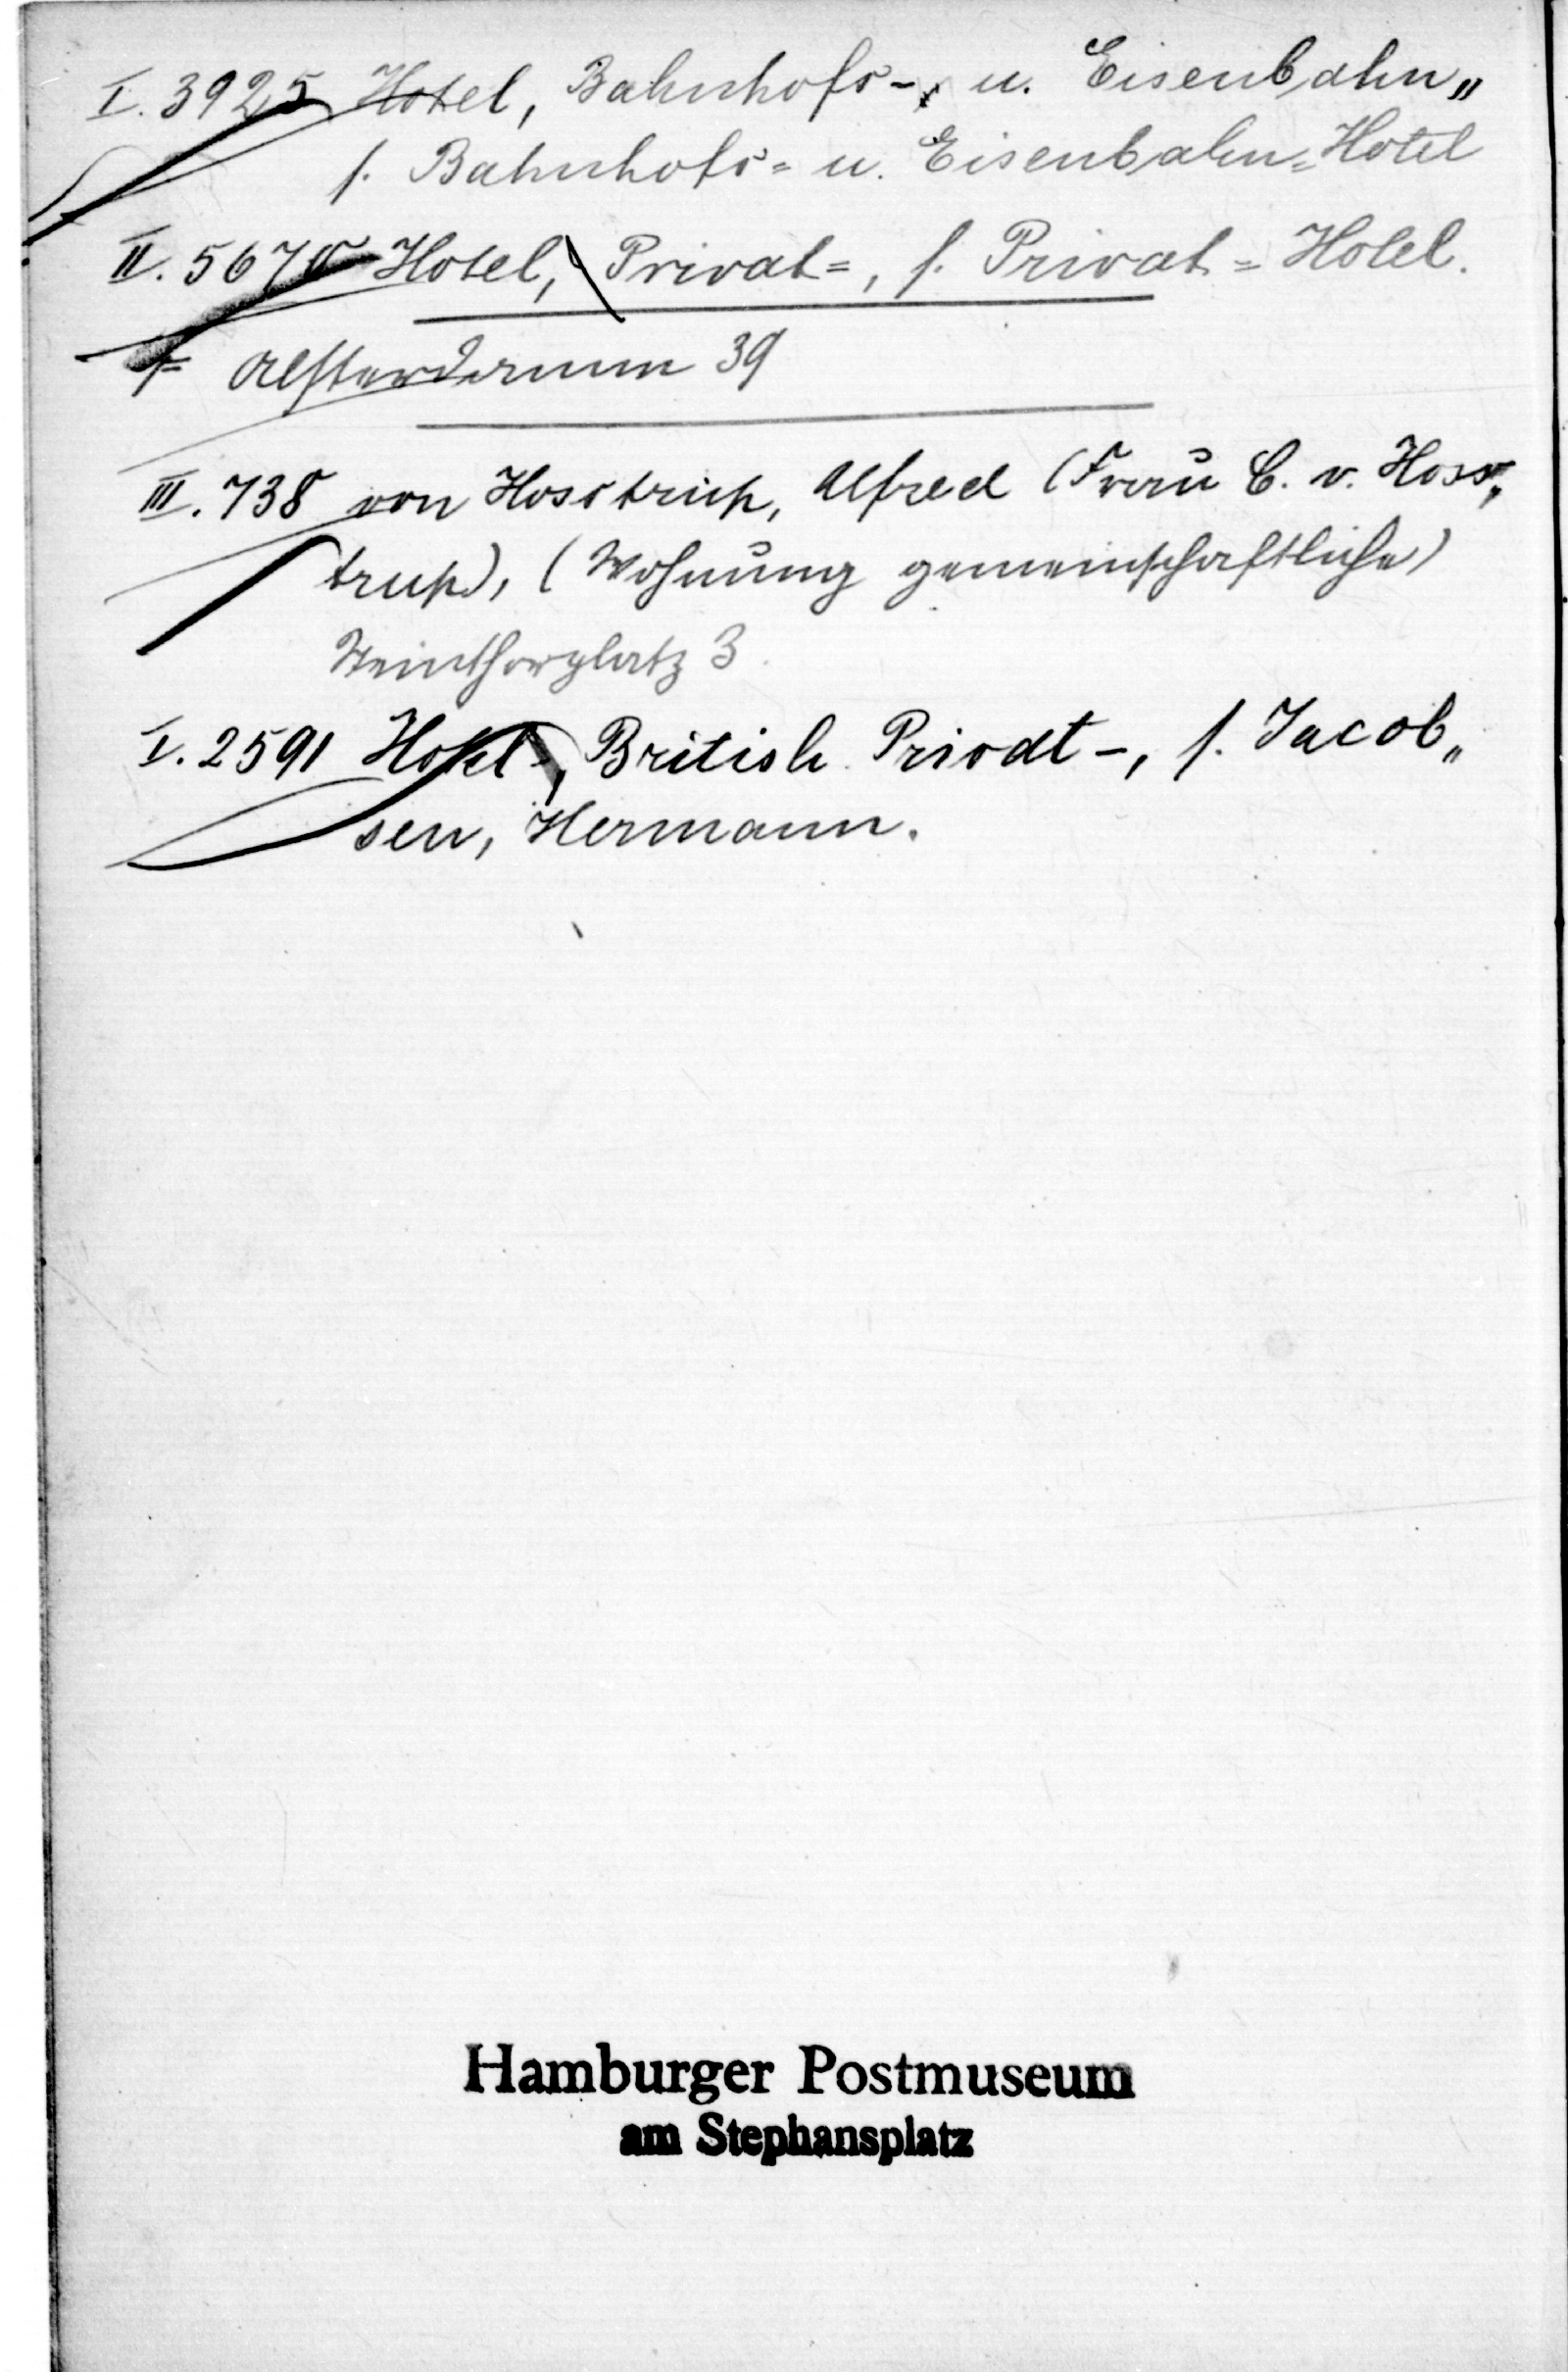 I. 3925 Hotel, Bahnhofs-, u. Eisenbahn„
s. Bahnhofs= u. Eisenbahn=Hotel
II. 5670 Hotel, Privat=, s. Privat=Hotel.
Alsterdamm 39
III. 738 von Hosstrup, Alfred (Frau C. v. Hoss„
trup), (Wohnung gemeinschaftliche)
Steinthorplatz 3.
I. 2591 Hotel, British Privat-, s. Jacob„
sen, Hermann.
Hamburger Postmuseum
am Stephansplatz